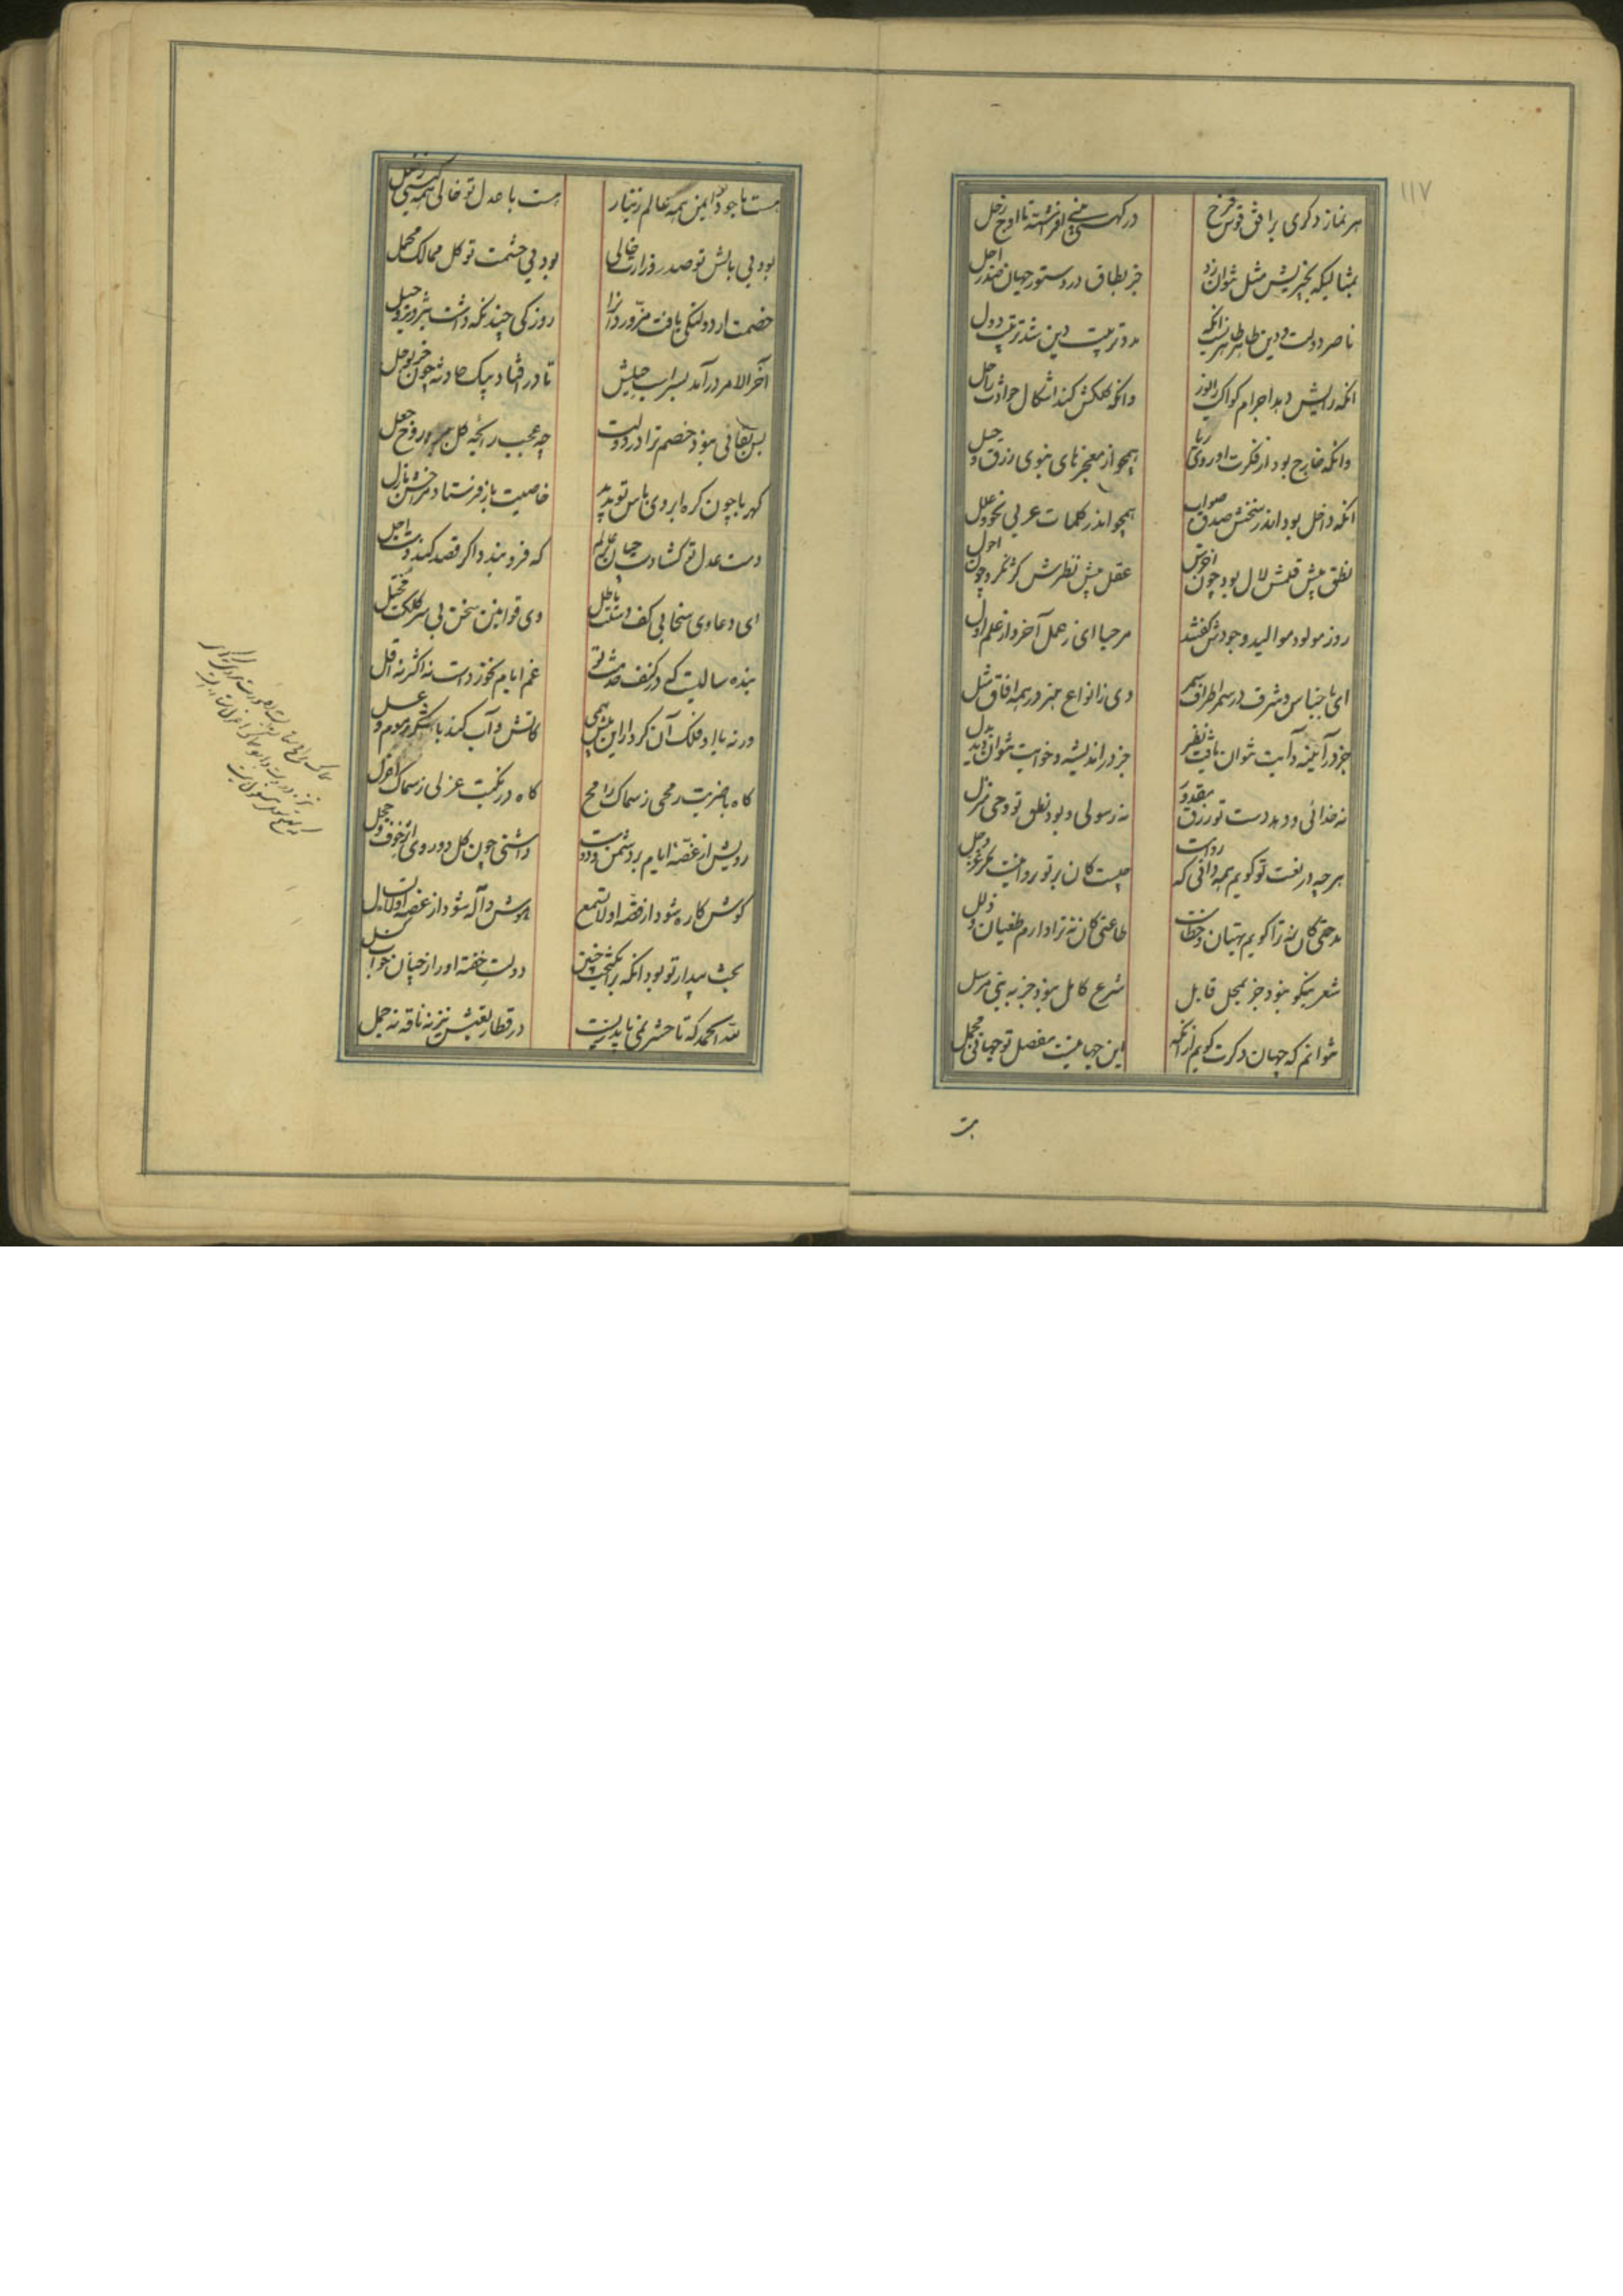 ۱۱۷
هر نماز دگری بر افق قوس قزح
درگهی بینی افراشته تا اوج زحل
بمثالیکه بخیریش مثل نتوان زد
جز بطاق در دستور جهان صدر اجل
ناصر دولت و دین طاهر طاهر نسب آنکه
مدد تربیت دین شد ترتیب دول
انکه رایش دهد اجرام کواکب را نور
وانکه کلکش کند اشکال حوادث را حل
وانکه خارج بود از فکرت او روی ریا
همچو از معجزهای نبوی زرق و حیل
انکه داخل بود اندر سخنش صدق و صواب
همچو اندر کلمات عربی نحو و علل
نطق پیش قلمش لال بود چون اخرس
عقل پیش نظرش کژ نگرد چون احول
روز مولود موالید وجودش گفتند
مرحبا ای ز عمل آخر و از علم اول
ای باجناس شرف در همه اطراف سمر
وی ز انواع هنر در همه آفاق مثل
جز در آیینه و آبت نتوان یافت نظیر
جز در اندیشه و خوابت نتوان دید بدل
نه خدائی و دهد دست تو رزق مقدور
نه رسولی و بود نطق تو وحی منزل
هر چه در نعت تو گویم همه دانی که رواست
چیست کان بر تو روا نیست مگر عز و جل
مدحتی کان نه ترا گویم بهتان و خطاست
طاعتی کان نه ترا دارم طغیان و زلل
شعر نیکو نبود جز بمحل قابل
شرع کامل نبود جز به نبی مرسل
نتوانم که جهان دگرت گویم از آنکه
این جهانیست مفصل تو جهانی مجمل
هست
هست با جود تو ایمن همه عالم ز نیاز
هست با عدل تو خالی همه گیتی ز خلل
بود بی بالش تو صدر وزارت خالی
بود بی حشمت تو کل ممالک مهمل
خصمت ار دولتکی یافت مزور آنرا
روزکی چند نگه داشت بتزویر و حیل
آخر الامر درآمد بسر اسب حیلش
تا در افتاد بیک حادثه چون خر بوحل
بس بقائی نبود خصم ترا در دولت
چه عجب رائحه گل ببرد روح جعل
کهربا چون گره ابروی باس تو بدید
خاصیت باز فرستاد
دست عدل تو گشادست چنان بر عالم
که فرو بندد اگر قصد کند دست اجل
ای دعاوی سخا بی کف دستت باطل
وی قوانین سخن بی سر کلکت مختل
بنده سالیست که در کنف خدمت تو
غم ایام نخوردست نه اکثر نه اقل
ورنه با او فلک آن کرد ازین پیش همی
کاتش و آب کند با شکر و موم و عسل
گاه با ضربت رمحی ز سماک رامح
گاه در نکبت عزلی ز سماک اعزل
رویش از غصه ایام بر دشمن و دوست
داشتی چون گل دو روی اثر خوف و خجل
گوش کاره شود از قصه او لا تسمع
هوش واله شود از غصه او لا تسأل
بخت بیدار تو بود انکه برانگیخت چنین
دولت خفته او را ز چنان خواب کسل
لله الحمد که تا حشر نمی باید بست
در قطار تعبش نیز نه ناقه نه جمل